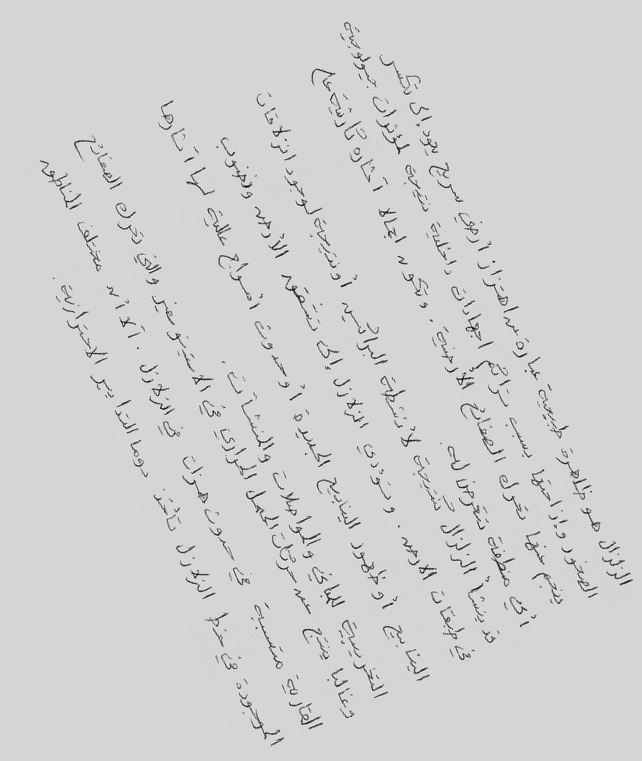 الزلزال هو ظاهرة طبيعية عبارة عن اهتزاز أرضي سريع يعود إلى تكسر
الصخور وإزاحتها بسبب تراكم اجهادات داخلية نتيجة لمؤثرات جيولوجية
ينجم عنها تحرك الصفائح الأرضية. وتكون لحالا آثاره كارثية على
أي منطقة تتعرض له.
قد ينشأ الزلزال كنتيجة لأنشطة البراكين أو نتيجة لوجود انزلاقات
في طبقات الأرض. وتؤدي الزلازل إلى تشقق الأرض ونضوب
الينابيع أو ظهور الينابيع الجديدة أو حدوث أمواج عالية لها آثارها
التخريبية للمباني والمواصلات والمنشآت.
وغالبا ينتج عن حركات الحمل الحراري في الاستينوسفير والتي تحرك الصفائح
القارية متسببة في حدوث هزات في الزلازل. ألا أنه مختلف المناطق
الموجودة في خط الزلازل تأخذ دوما التدابير الاحترازية.